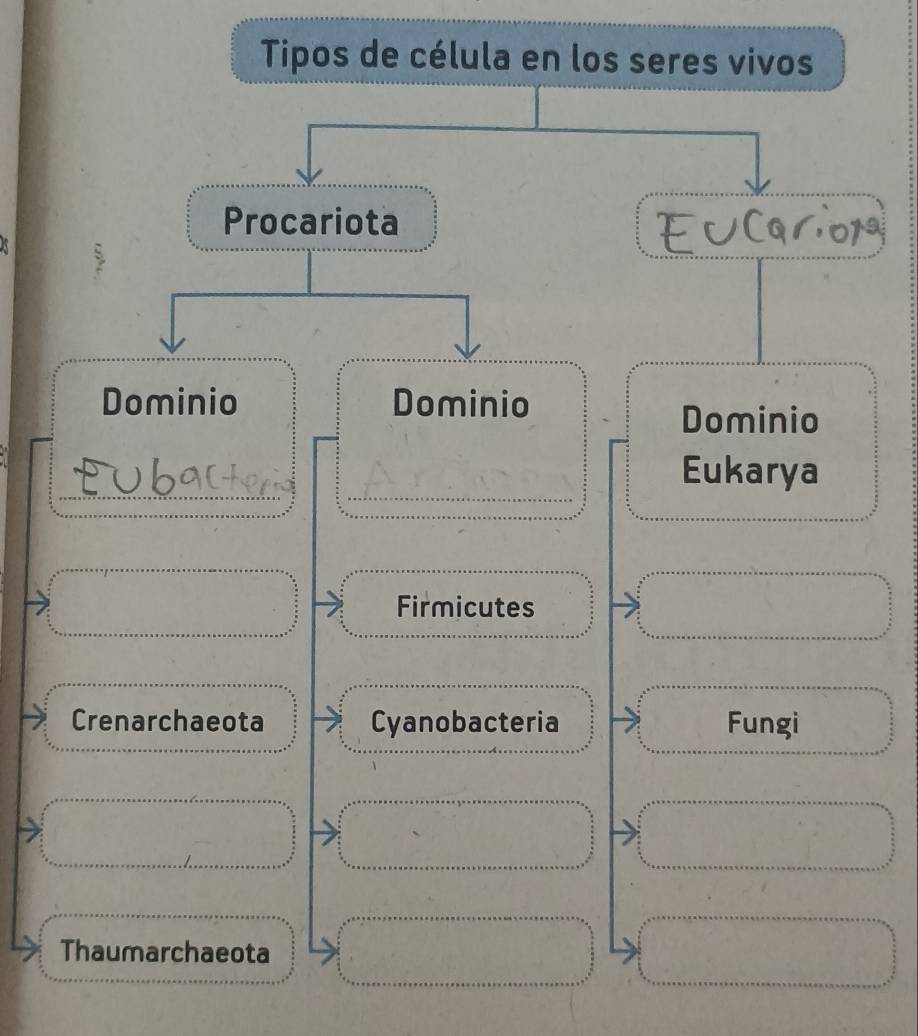 Tipos de célula en los seres vivos
Procariota
Eucariota
Dominio
Eubacteria
Dominio
Dominio
Eukarya
Firmicutes
Crenarchaeota
Cyanobacteria
Fungi
Thaumarchaeota